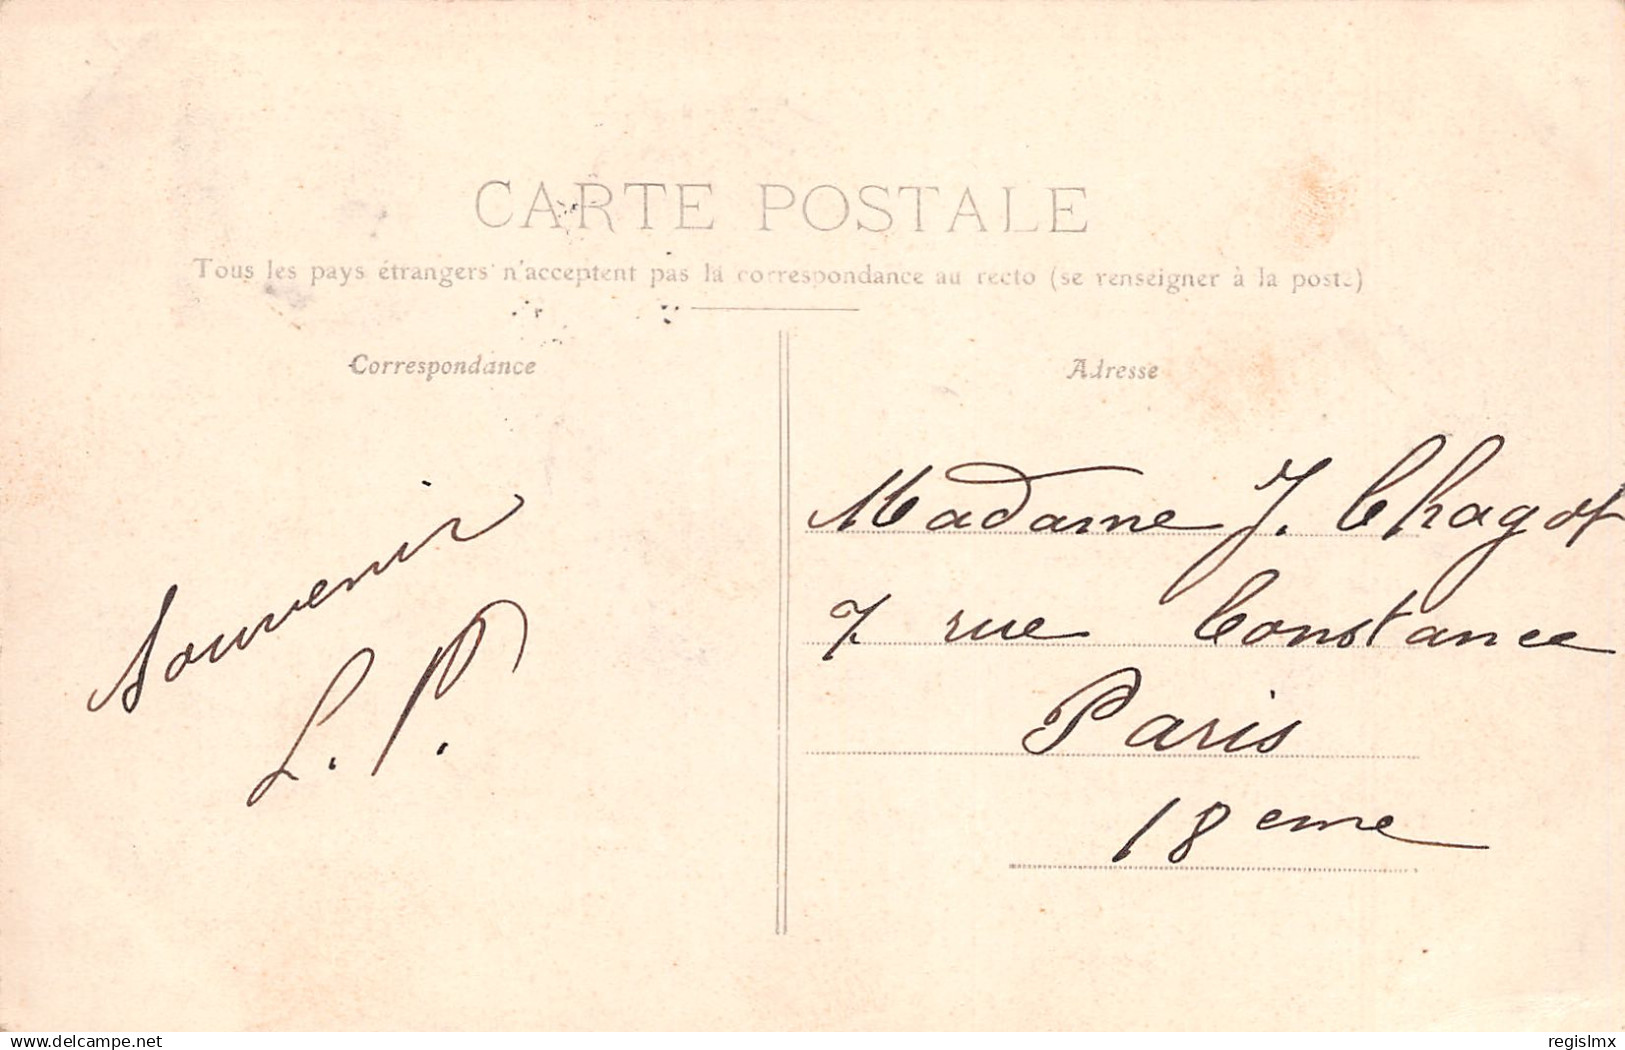 CARTE POSTALE
Tous les pays étrangers n'acceptent pas la correspondance au recto (se renseigner à la poste)
Correspondance
Souvenir
L. P.
Adresse
Madame J. Chagot
7 rue Constance
Paris
18eme
delcampe.net
regislmx